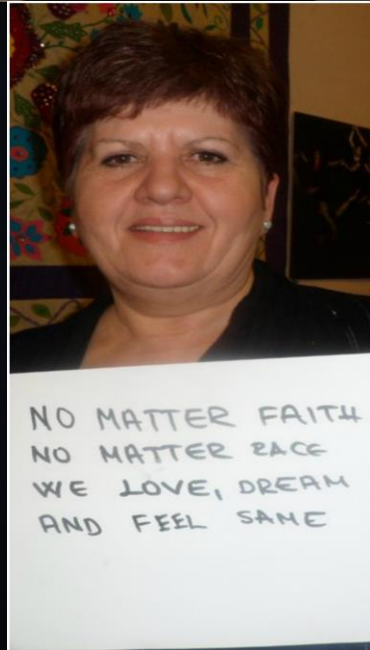 NO MATTER FAITH
NO MATTER RACE
WE LOVE, DREAM
AND FEEL SAME